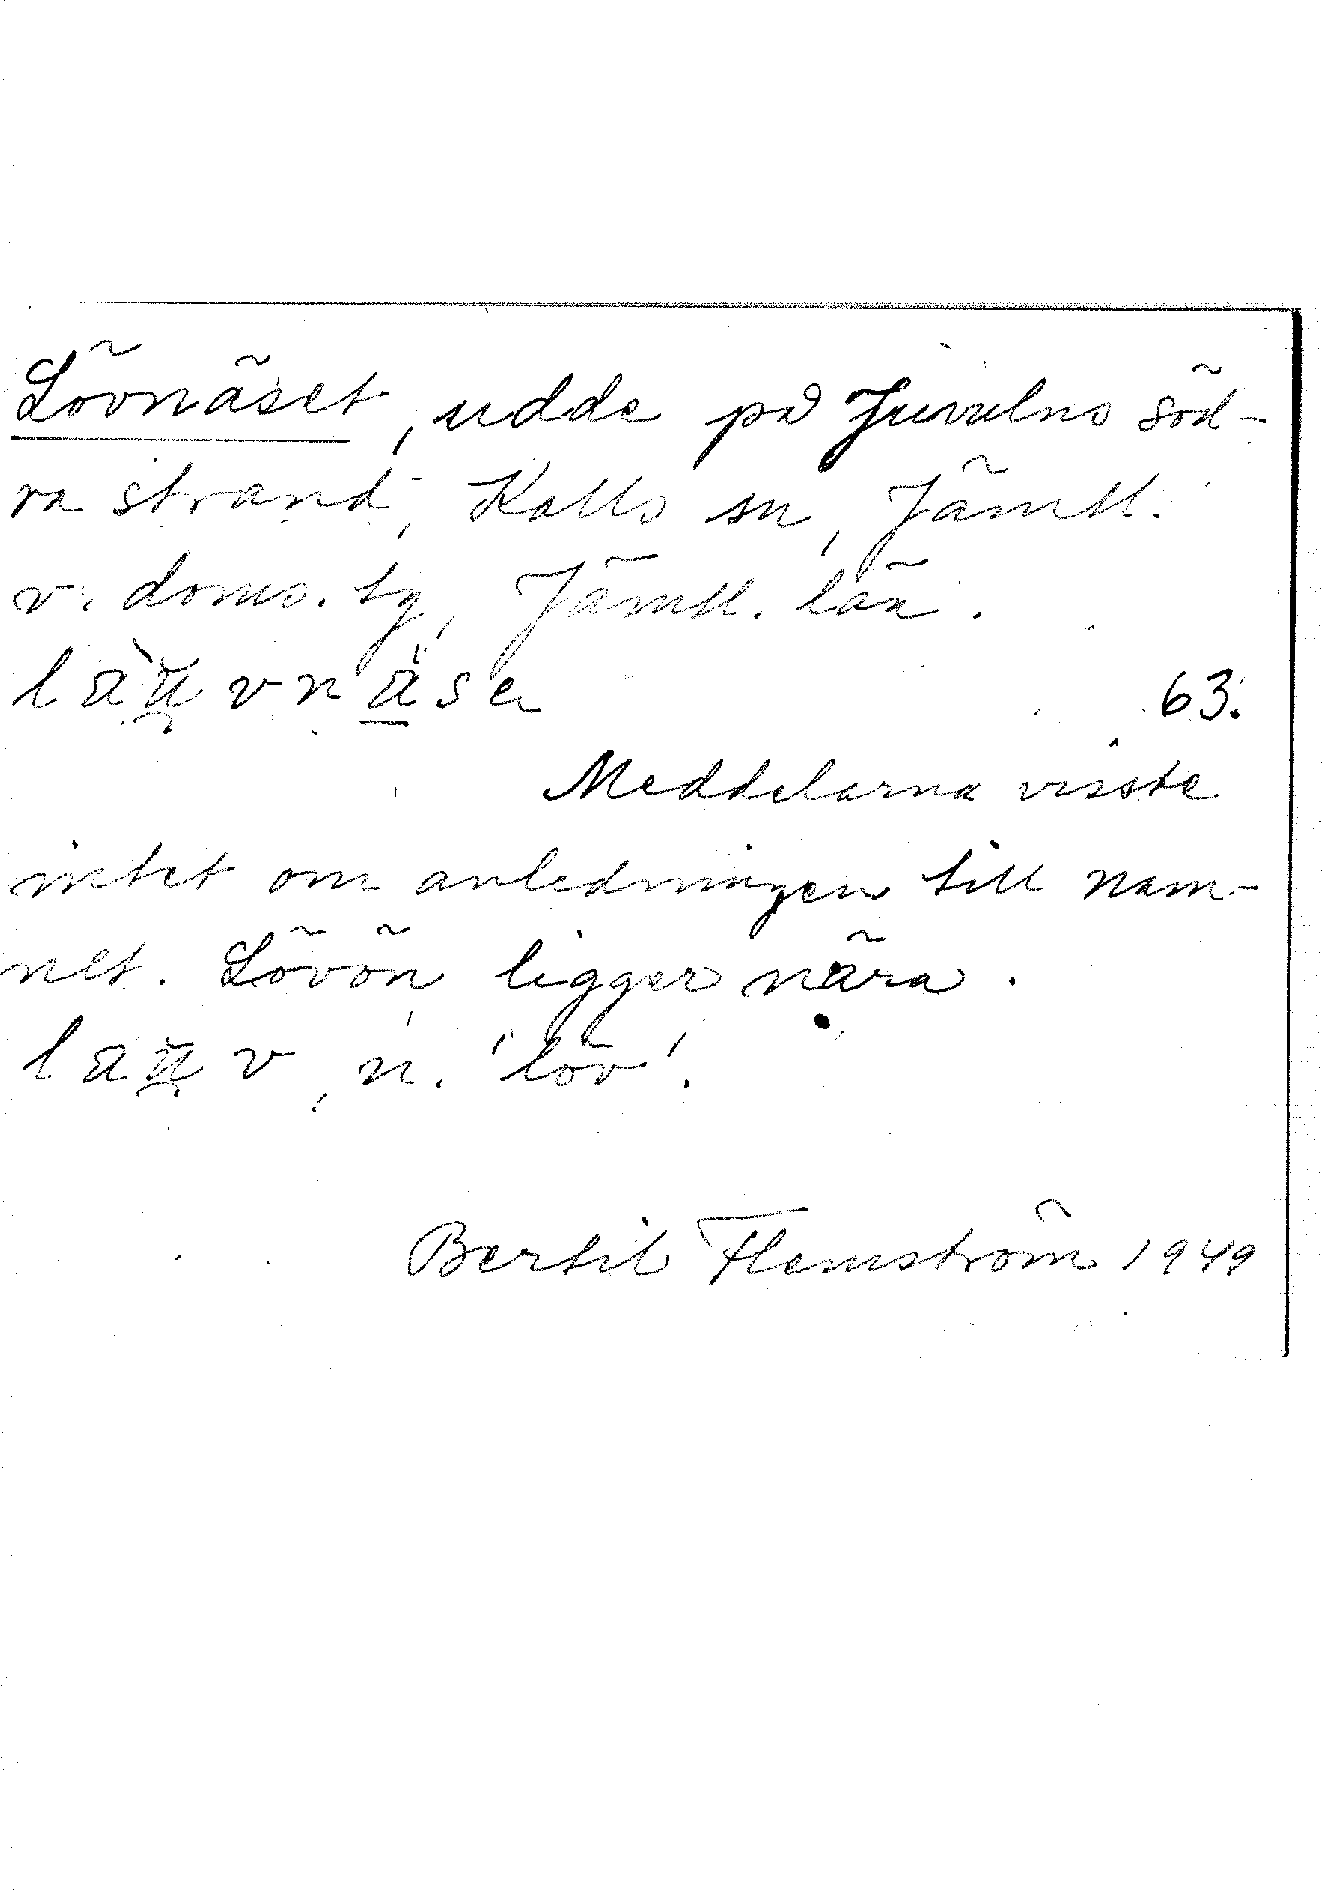 Lövnäset, udde på Juvulns söd-
ra strand, Kalls sn, Jämtl.
v. doms. tg, Jämtl. län.
lau̯vnäse 63.
Meddelarna visste
intet om anledningen till nam-
net. Lövön ligger nära.
lau̯v, n. 'löv'.
Bertil Flemström 1949